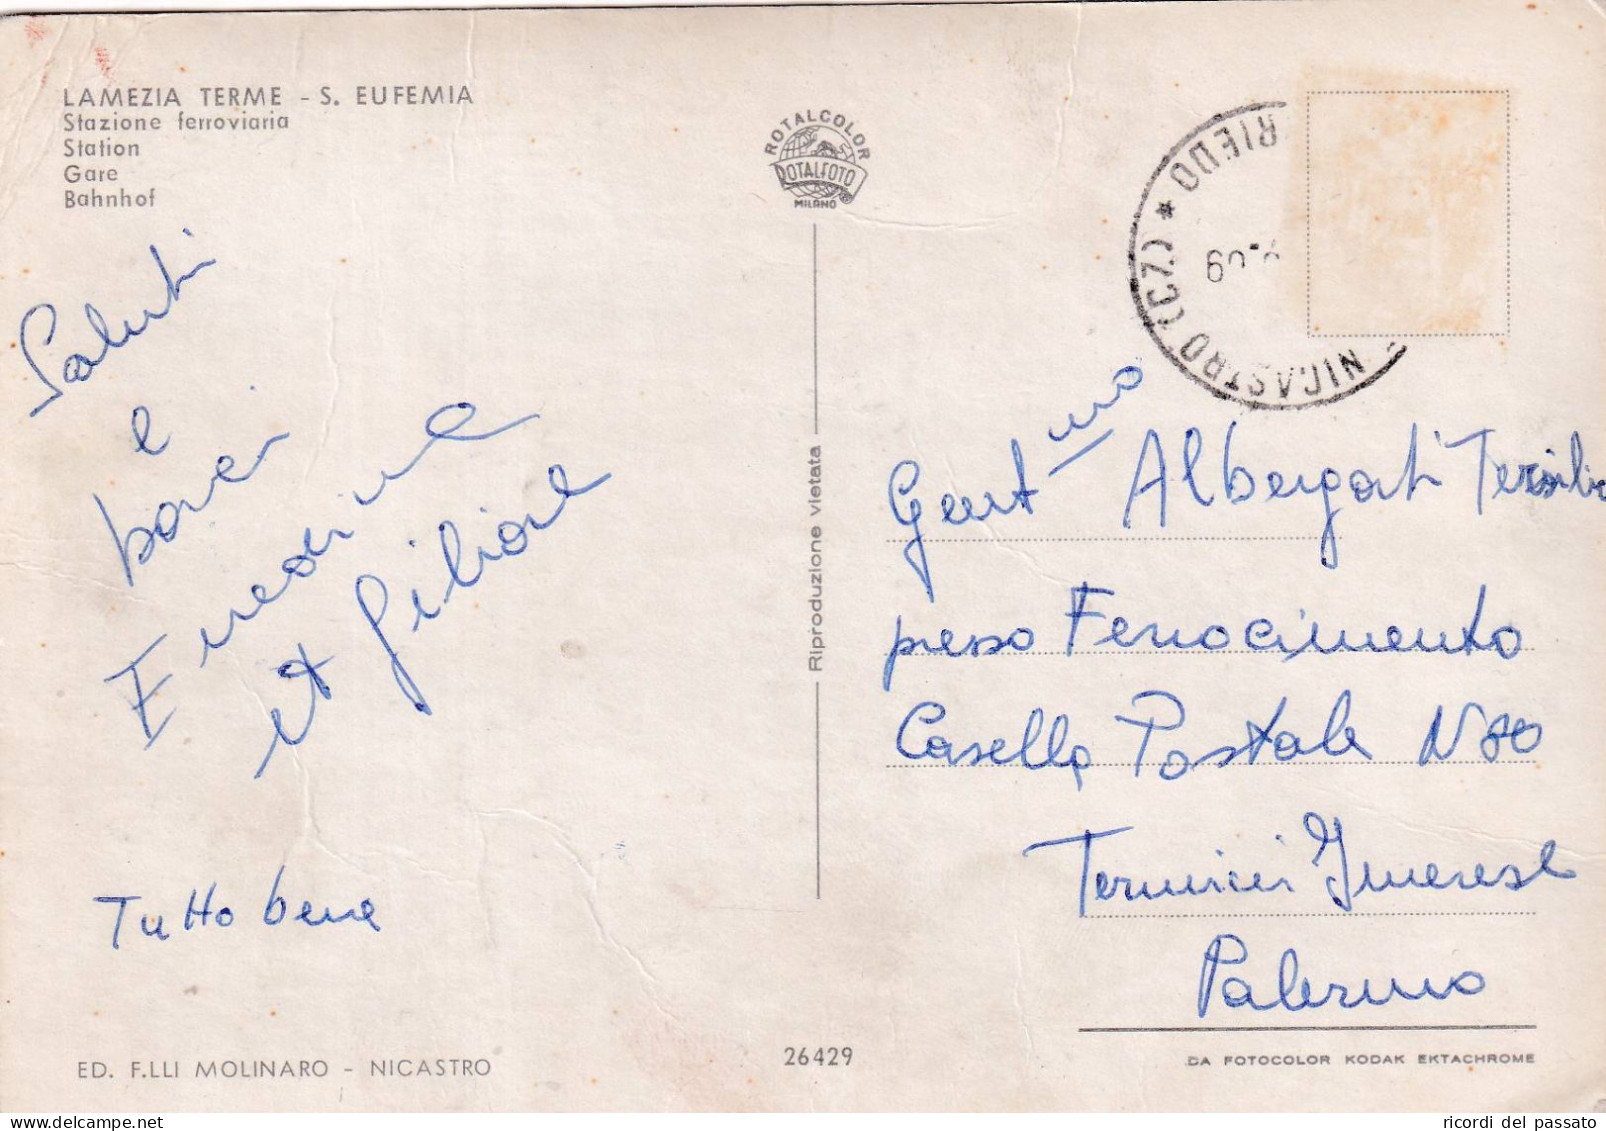 LAMEZIA TERME - S. EUFEMIA
Stazione ferroviaria
Station
Gare
Bahnhof
ROTALCOLOR
ROTALFOTO
MILANO
NICASTRO (CZ) *
Saluti
e
baci
et
Tutto bene
Riproduzione vietata
Gent mo Albergati Tersilia
presso Ferrocimento
Casella Postale N 80
Termini Imerese
Palermo
ED. F.LLI MOLINARO - NICASTRO
26429
DA FOTOCOLOR KODAK EKTACHROME
ricordi del passato